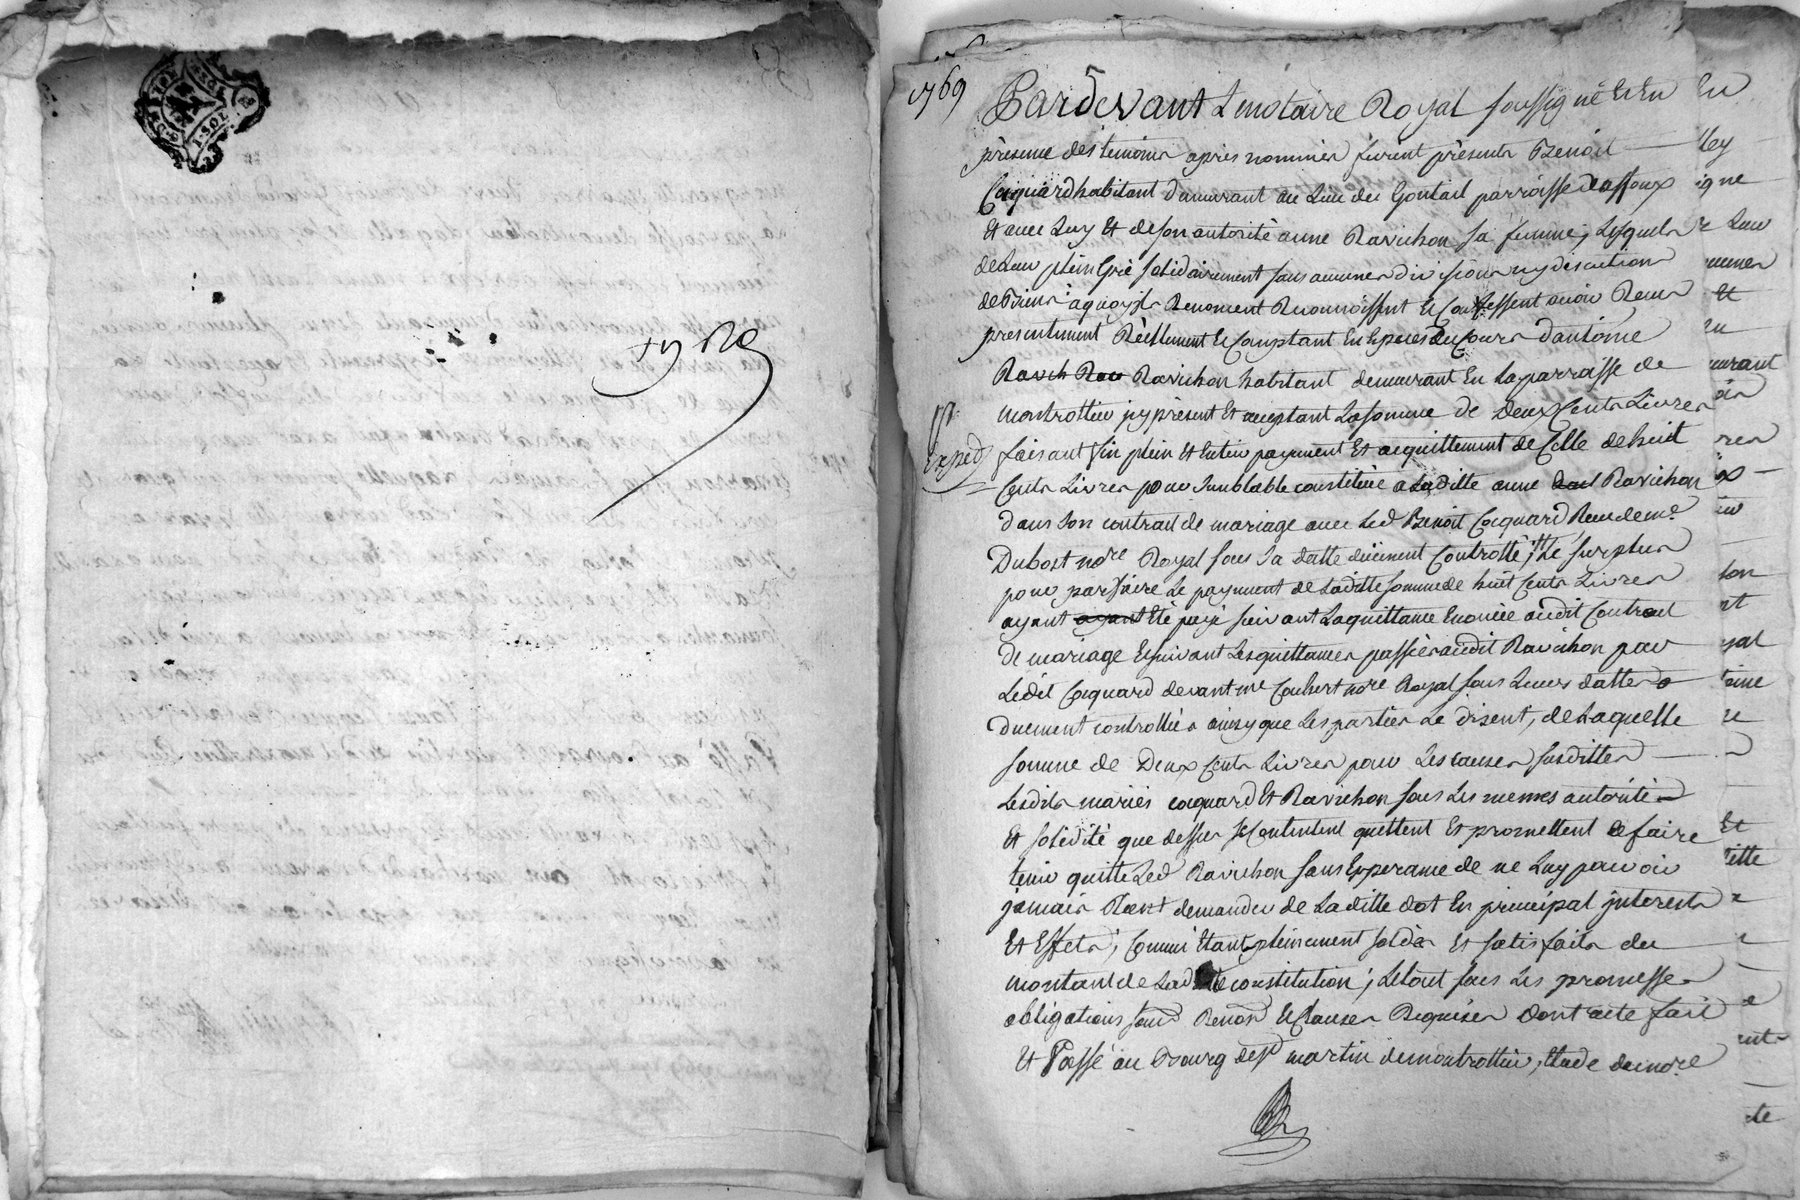 1769
Pardevant Le notaire Royal soussigné Et En
présence des temoins apres nommés furent présents Benoit
Coquard habitant demeurant au Lieu du Gontail parroisse daffoux
Et avec Luy Et de son autorité anne Ravichon sa femme, Lesquels
de Leur plein Gré solidairement sans aucunes divisions ny discutions
de Biens aquoy ils Renoncent Reconnoissent Et Confessent avoir Receu
presentement Réellement Et Comptant En Especes du Cours dantoine
Ravich Rav Ravichon habitant demeurant En La parroisse de
montrottier jcy présent Et acceptant La somme de Deux Cents Livres
faisant fin plein Et Entier payement Et acquittement de Celle de huit
Expéd
Cents Livres pour semblable constituée a Laditte anne Ravichon
dans son contrait de mariage avec Led Benoit Coquard Receu de me
Dubost nore Royal sous sa datte düement Controllé, Le surplus
pour parfaire Le payement de Laditte somme de huit Cents Livres
ayant ayant Eté payé suivant La quittance Enoncée audit Contrait
de mariage Et suivant Les quittances passées audit Ravichon par
Ledit Coquard devant me Coubert nore Royal sous Leurs dattes
duement controllées ainsy que Les parties Le disent, de Laquelle
somme de Deux Cents Livres pour Les causes susdittes
Lesdits mariés coquard Et Ravichon sous Les memes autorité
Et solidité que dessus se Contentent quittent Et promettent de faire
tenir quitte Led Ravichon sans Esperance de ne Luy pouvoir
jamais Rient demander de Laditte dot En principal jnterests
Et Effets, Comme Etant pleinement soldés Et satisfaits du
montant de Ladte constitution; Le tout sous Les promesses
obligations soum Renon Et Clauses Requises Dont acte fait
Et Passé au Bourg de St martin de montrottier, Etude du nore